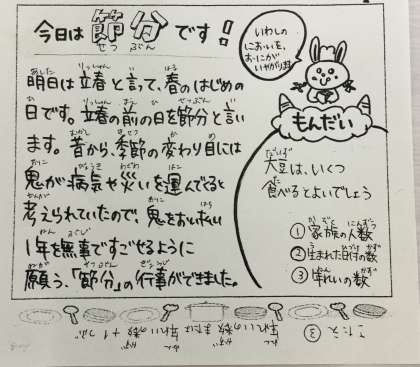 今日は節分です!
せつぶん
明日は立春と言って、春のはじめの
日です。立春の前の日を節分と言い
ます。昔から、季節の変わり目には
鬼が病気や災いを運んでくると
考えられていたので、鬼をおいはらい
1年を無事ですごせるように
願う、「節分」の行事ができました。
いわしの
においを、
おにが
いやがります
もんだい
大豆は、いくつ
食べるとよいでしょう
①家族の人数
②生まれた日付の数
③年れいの数
こたえ
③
年れいの数
または
年れいの数+1つぶ